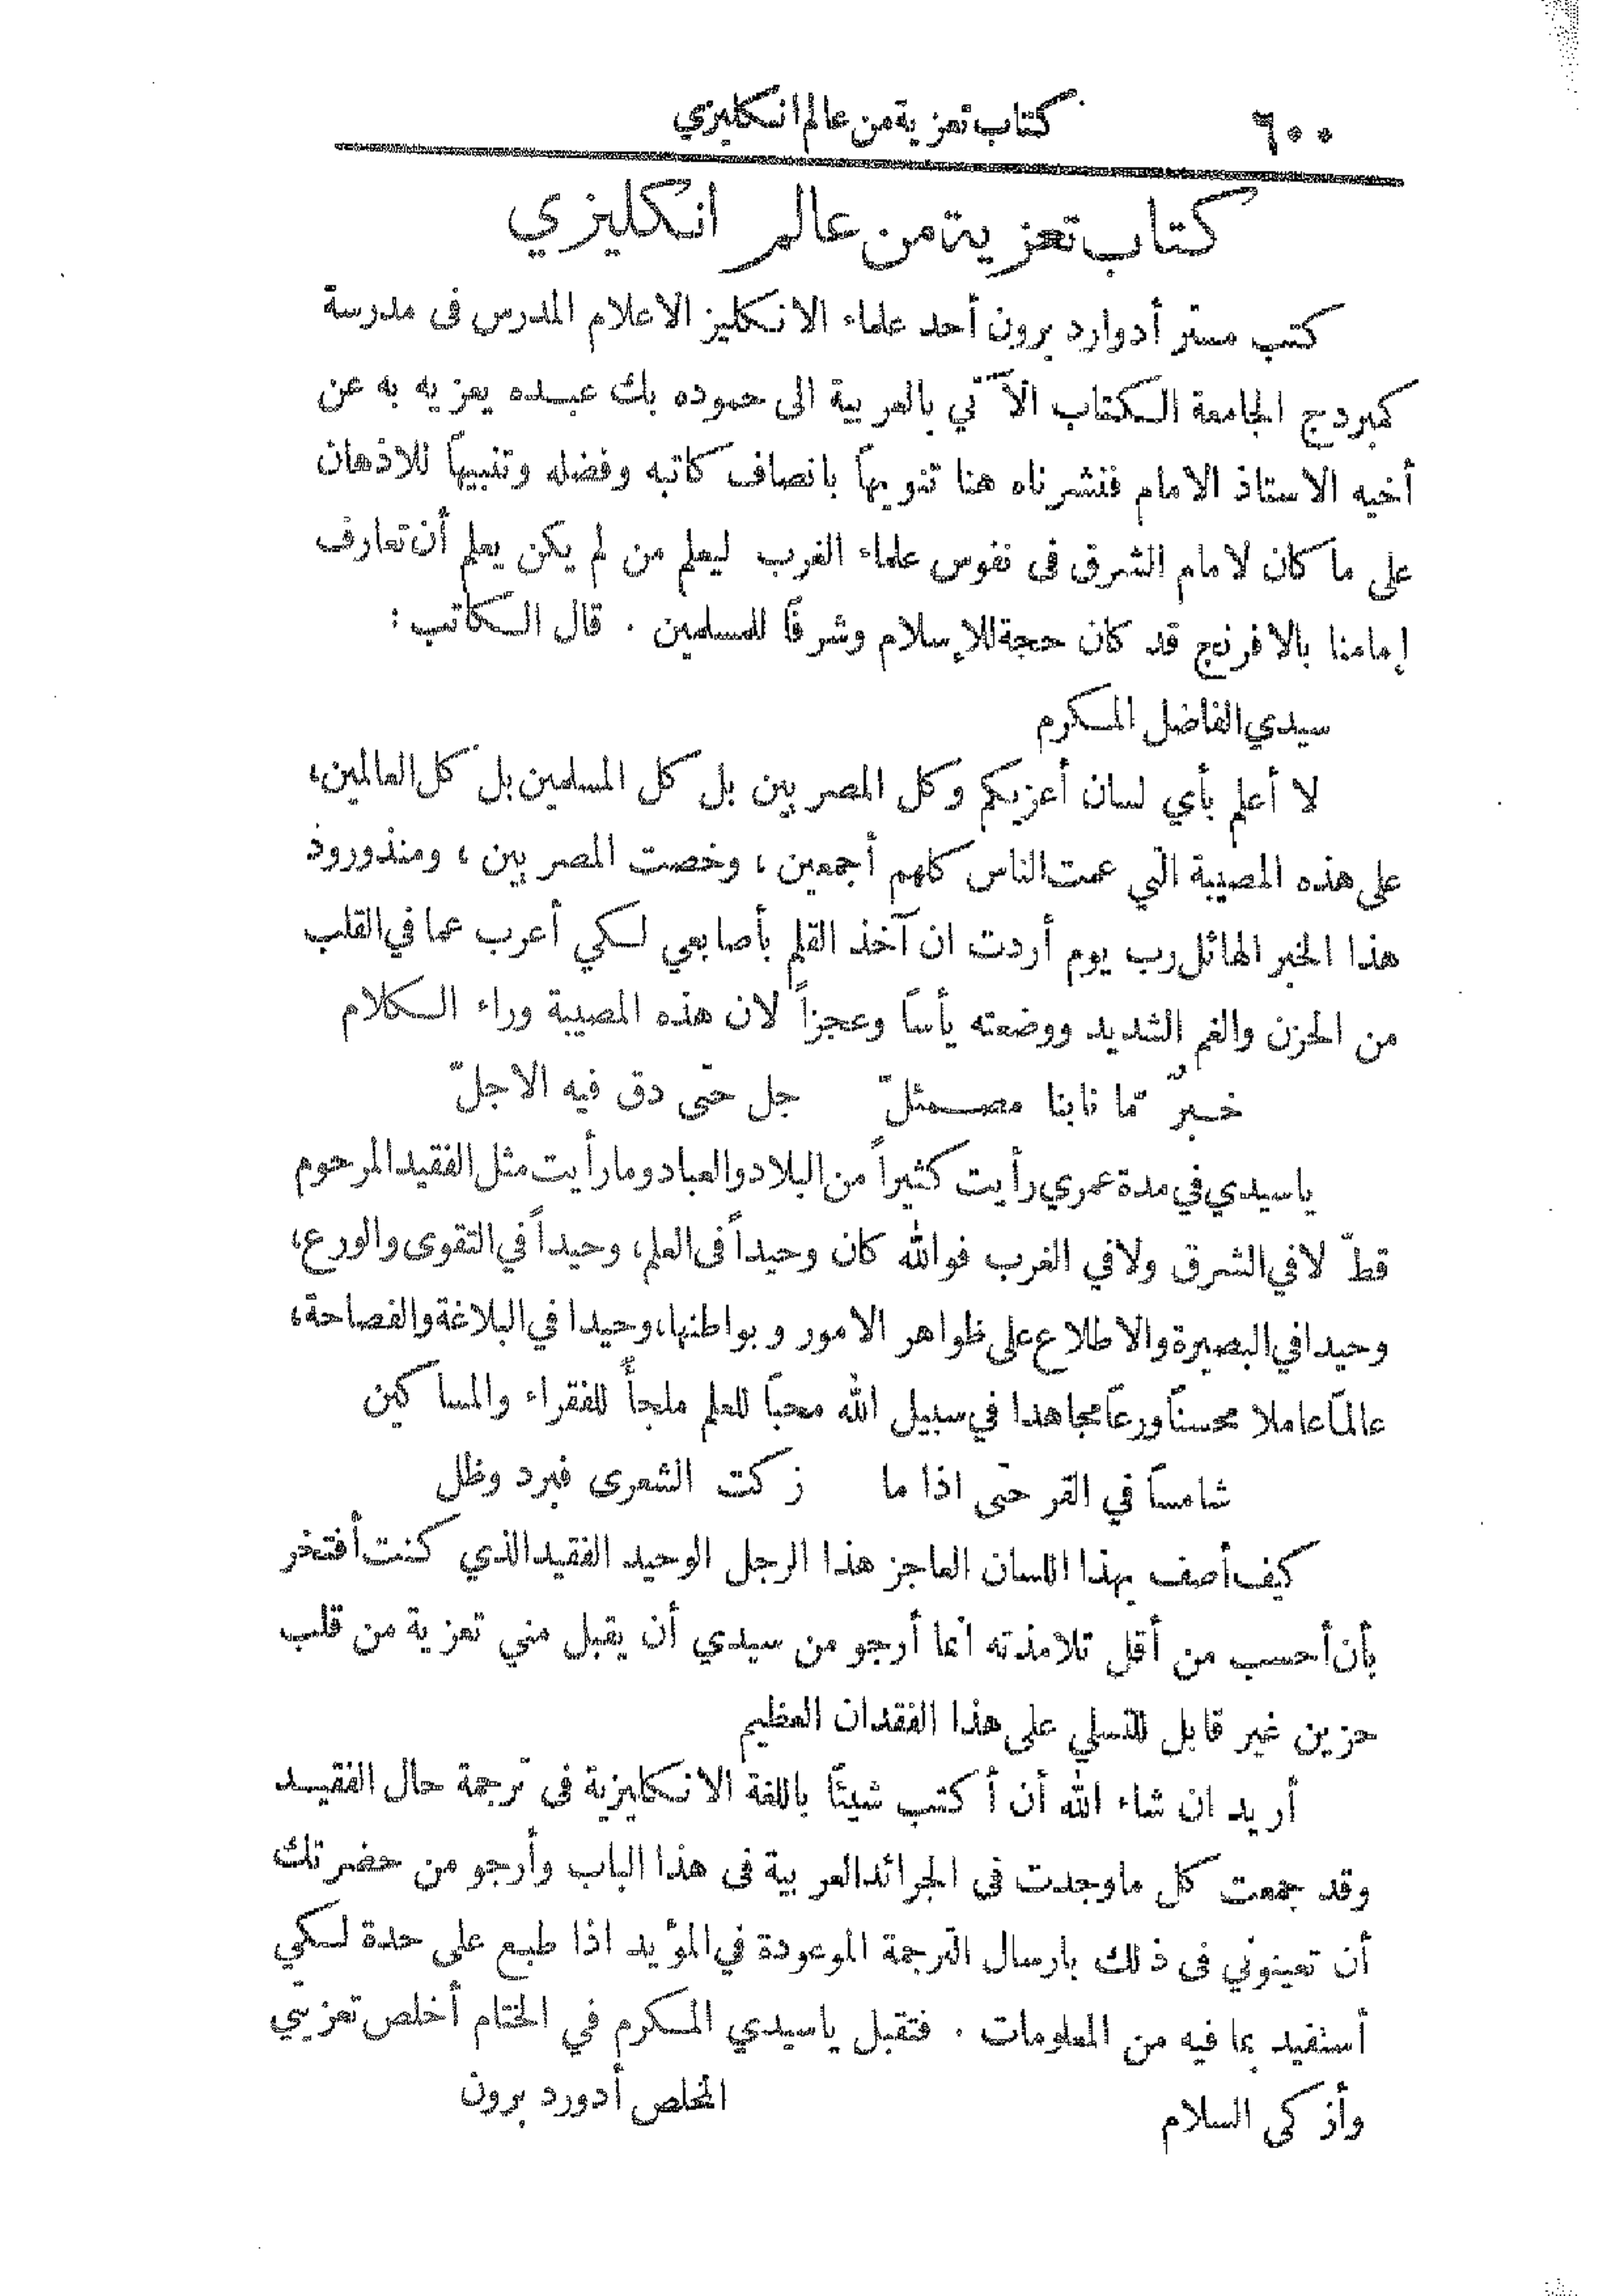 ٦٠٠ كتاب تعزية من عالم انكليزي
كتاب تعزية من عالم انكليزي
كتب مستر أدوارد برون أحد علماء الانكليز الاعلام المدرس فى مدرسة
كمبردج الجامعة الكتاب الآتي بالعربية الى حموده بك عبده يعزيه به عن
أخيه الاستاذ الامام فنشرناه هنا تنويهاً بانصاف كاتبه وفضله وتنبيهاً للاذهان
على ما كان لامام الشرق فى نفوس علماء الغرب ليعلم من لم يكن يعلم أن تعارف
إمامنا بالافرنج قد كان حجة للإسلام وشرفًا للمسلمين . قال الكاتب :
سيدي الفاضل المكرم
لا أعلم بأي لسان أعزيكم وكل المصريين بل كل المسلمين بل كل العالمين،
على هذه المصيبة التي عمت الناس كلهم أجمعين ، وخصت المصريين ، ومنذ ورود
هذا الخبر الهائل رب يوم أردت ان آخذ القلم بأصابعي لكي أعرب عما في القلب
من الحزن والغم الشديد ووضعته يأسًا وعجزاً لان هذه المصيبة وراء الكلام
خبرٌ مّا نابنا مصمئلّ جل حتى دق فيه الاجلّ
ياسيدي في مدة عمري رأيت كثيراً من البلاد والعباد وما رأيت مثل الفقيد المرحوم
قطّ لا في الشرق ولا في الغرب فوالله كان وحيداً فى العلم، وحيداً في التقوى والورع،
وحيدا في البصيرة والاطلاع على ظواهر الامور وبواطنها، وحيدا في البلاغة والفصاحة،
عالمًا عاملا محسنًا ورعًا مجاهدا في سبيل الله محبًا للعلم ملجأً للفقراء والمساكين
شامسًا في القر حتى اذا ما زكت الشعرى فبرد وظل
كيف أصف بهذا اللسان العاجز هذا الرجل الوحيد الفقيد الذي كنت أفتخر
بأن أحسب من أقل تلامذته انما أرجو من سيدي أن يقبل مني تعزية من قلب
حزين غير قابل للتسلي على هذا الفقدان العظيم
أريد ان شاء الله أن أكتب شيئًا باللغة الانكليزية فى ترجمة حال الفقيد
وقد جمعت كل ما وجدت في الجرائد العربية فى هذا الباب وأرجو من حضرتك
أن تعينوني فى ذلك بارسال الترجمة الموعودة في المؤيد اذا طبع على حدة لكي
أستفيد بما فيه من المعلومات . فتقبل ياسيدي المكرم في الختام أخلص تعزيتي
وأزكى السلام المخلص أدورد برون